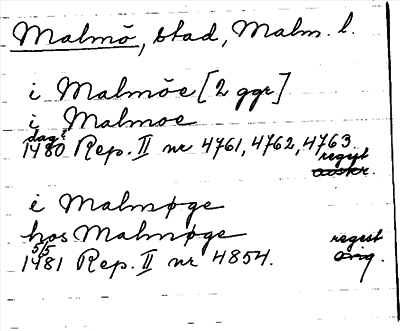 Malmö, stad, Malm. l.
i Malmöe [2 ggr]
i Malmoe
dag?
1480 Rep. II nr 4761, 4762, 4763
regest
avskr.
i Malmøge
hos Malmøge
5/5 regest
1481 Rep. II nr 4854. orig.